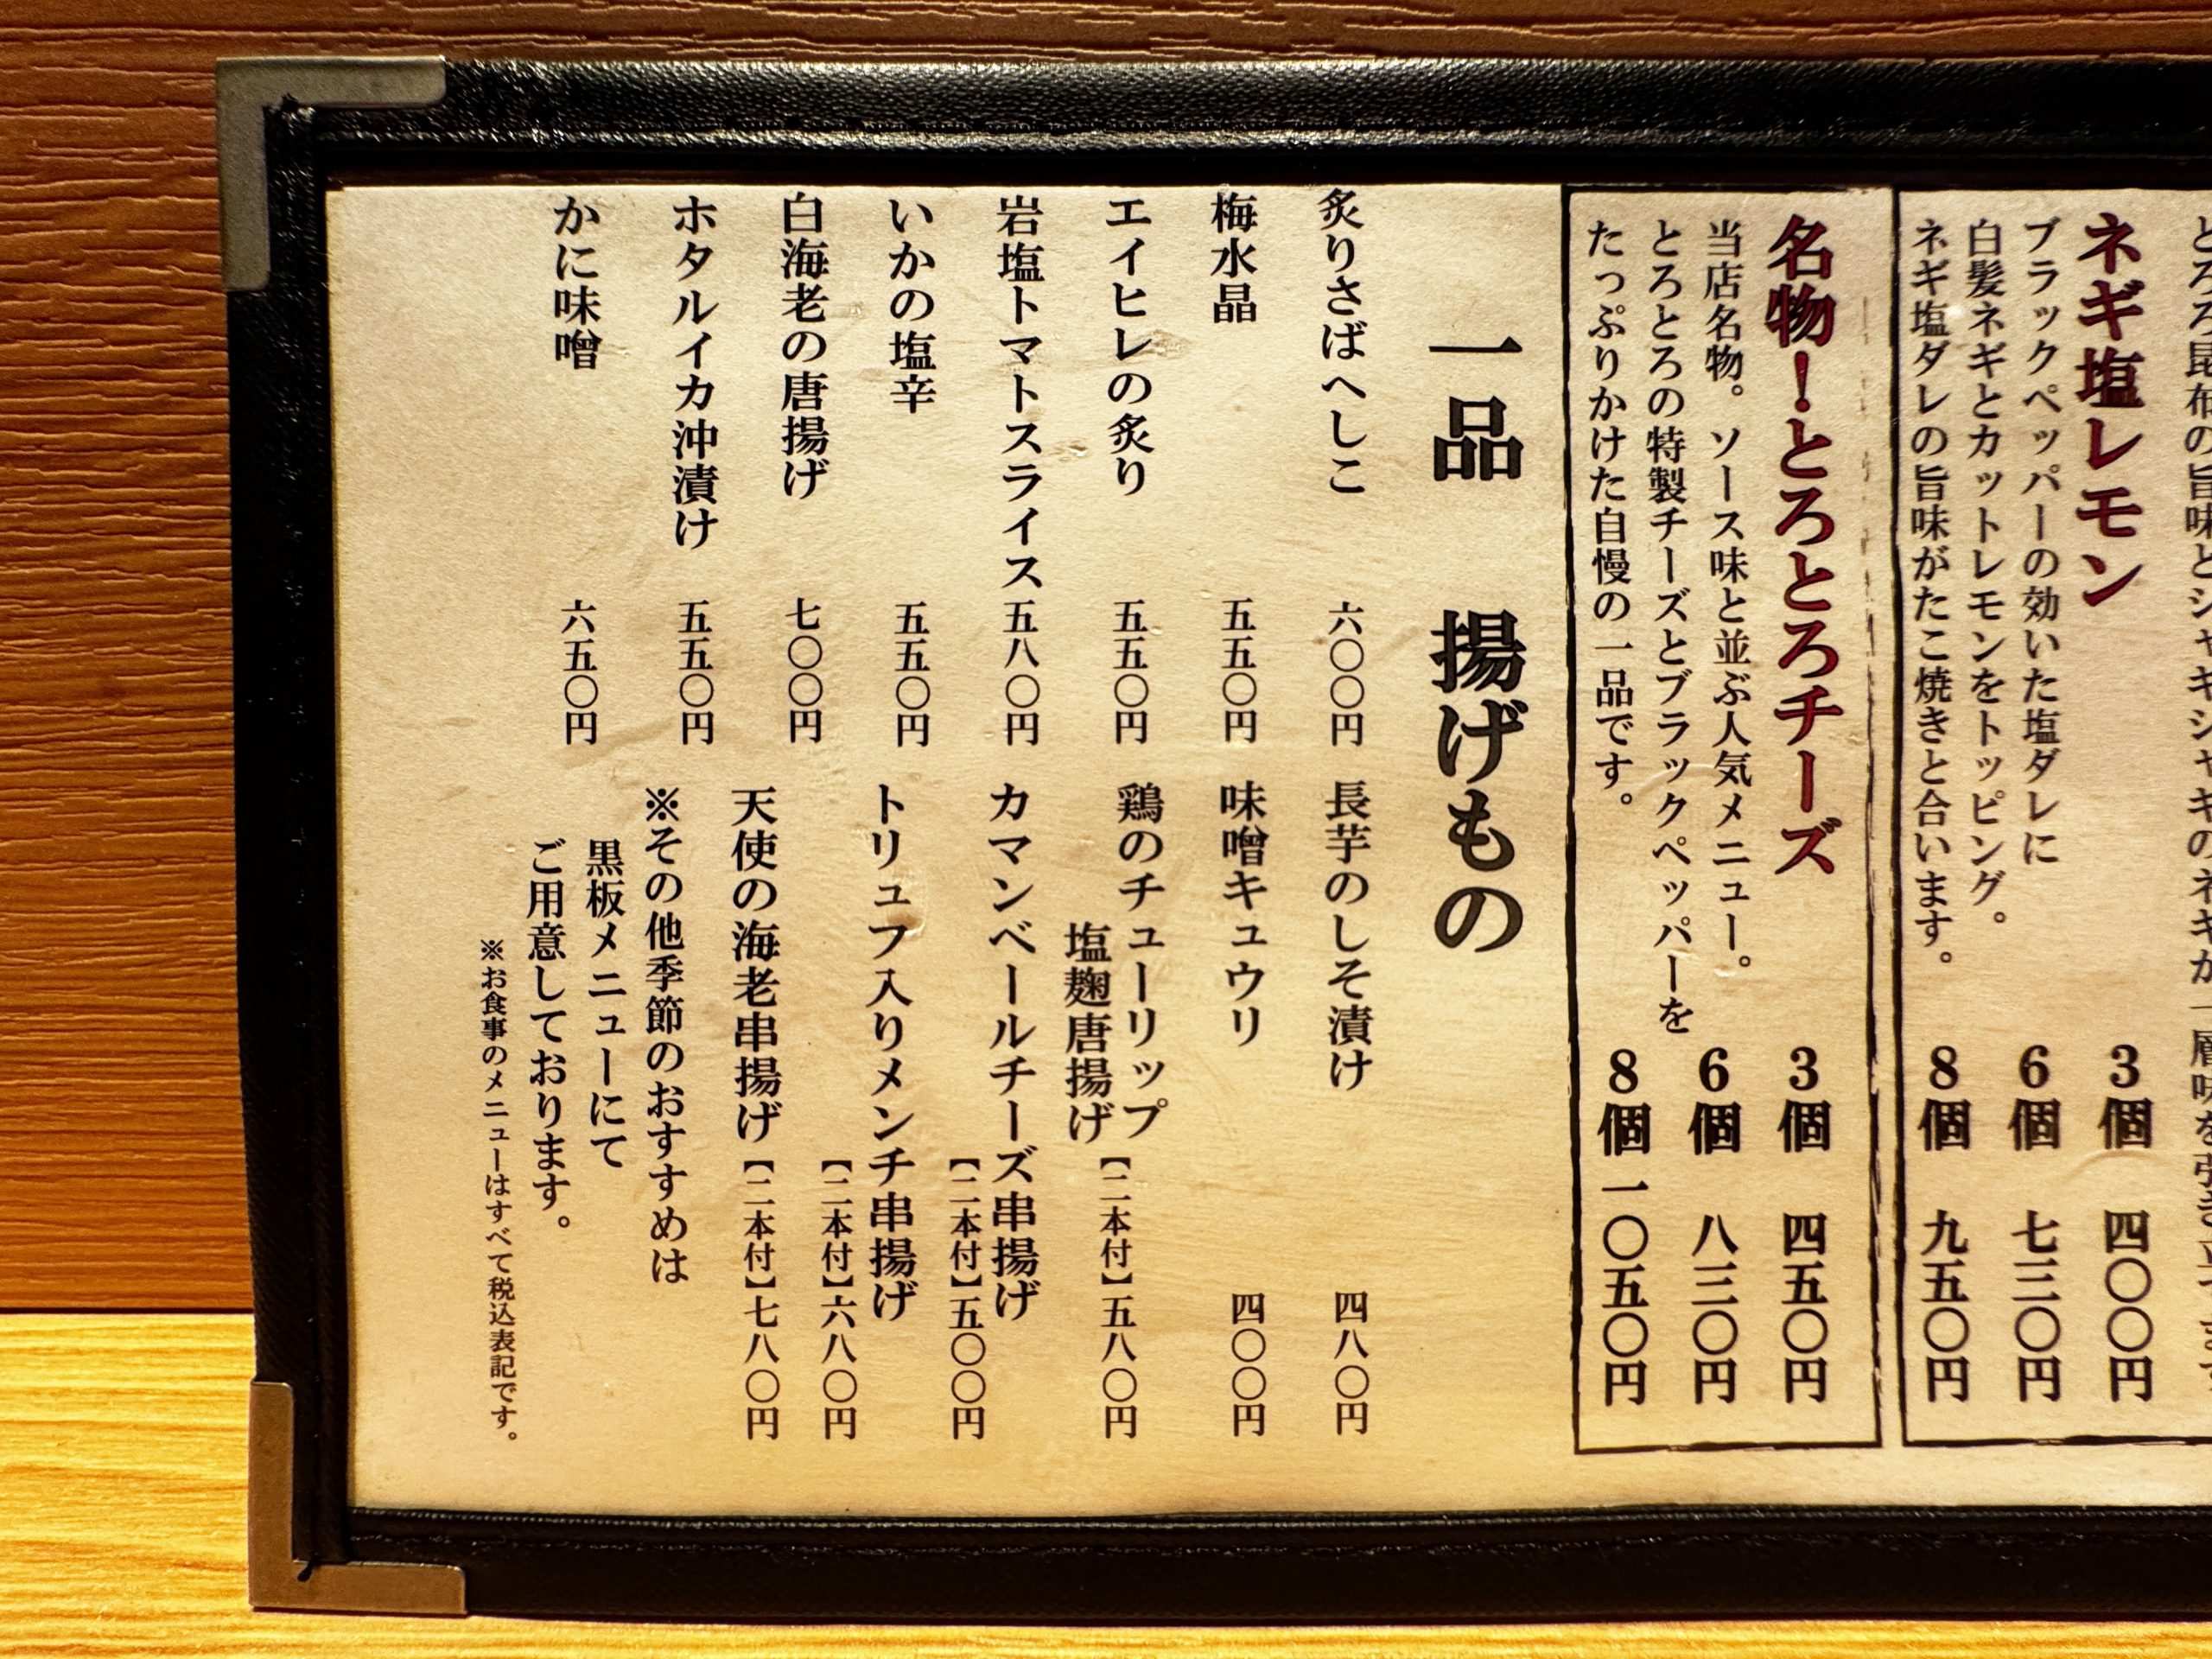 ネギ塩レモン
ブラックペッパーの効いた塩ダレに
白髪ネギとカットレモンをトッピング。
ネギ塩ダレの旨味がたこ焼きと合います。
3個 四〇〇円
6個 七三〇円
8個 九五〇円
名物！とろとろチーズ
当店名物。ソース味と並ぶ人気メニュー。
とろとろの特製チーズとブラックペッパーを
たっぷりかけた自慢の一品です。
3個 四五〇円
6個 八三〇円
8個 一〇五〇円
一品 揚げもの
炙りさばへしこ 六〇〇円
梅水晶 五五〇円
エイヒレの炙り 五五〇円
岩塩トマトスライス 五八〇円
いかの塩辛 五五〇円
白海老の唐揚げ 七〇〇円
ホタルイカ沖漬け 五五〇円
かに味噌 六五〇円
長芋のしそ漬け 四八〇円
味噌キュウリ 四〇〇円
鶏のチューリップ
塩麹唐揚げ【二本付】五八〇円
カマンベールチーズ串揚げ
【二本付】五〇〇円
トリュフ入りメンチ串揚げ
【二本付】六八〇円
天使の海老串揚げ【二本付】七八〇円
※その他季節のおすすめは
黒板メニューにて
ご用意しております。
※お食事のメニューはすべて税込表記です。